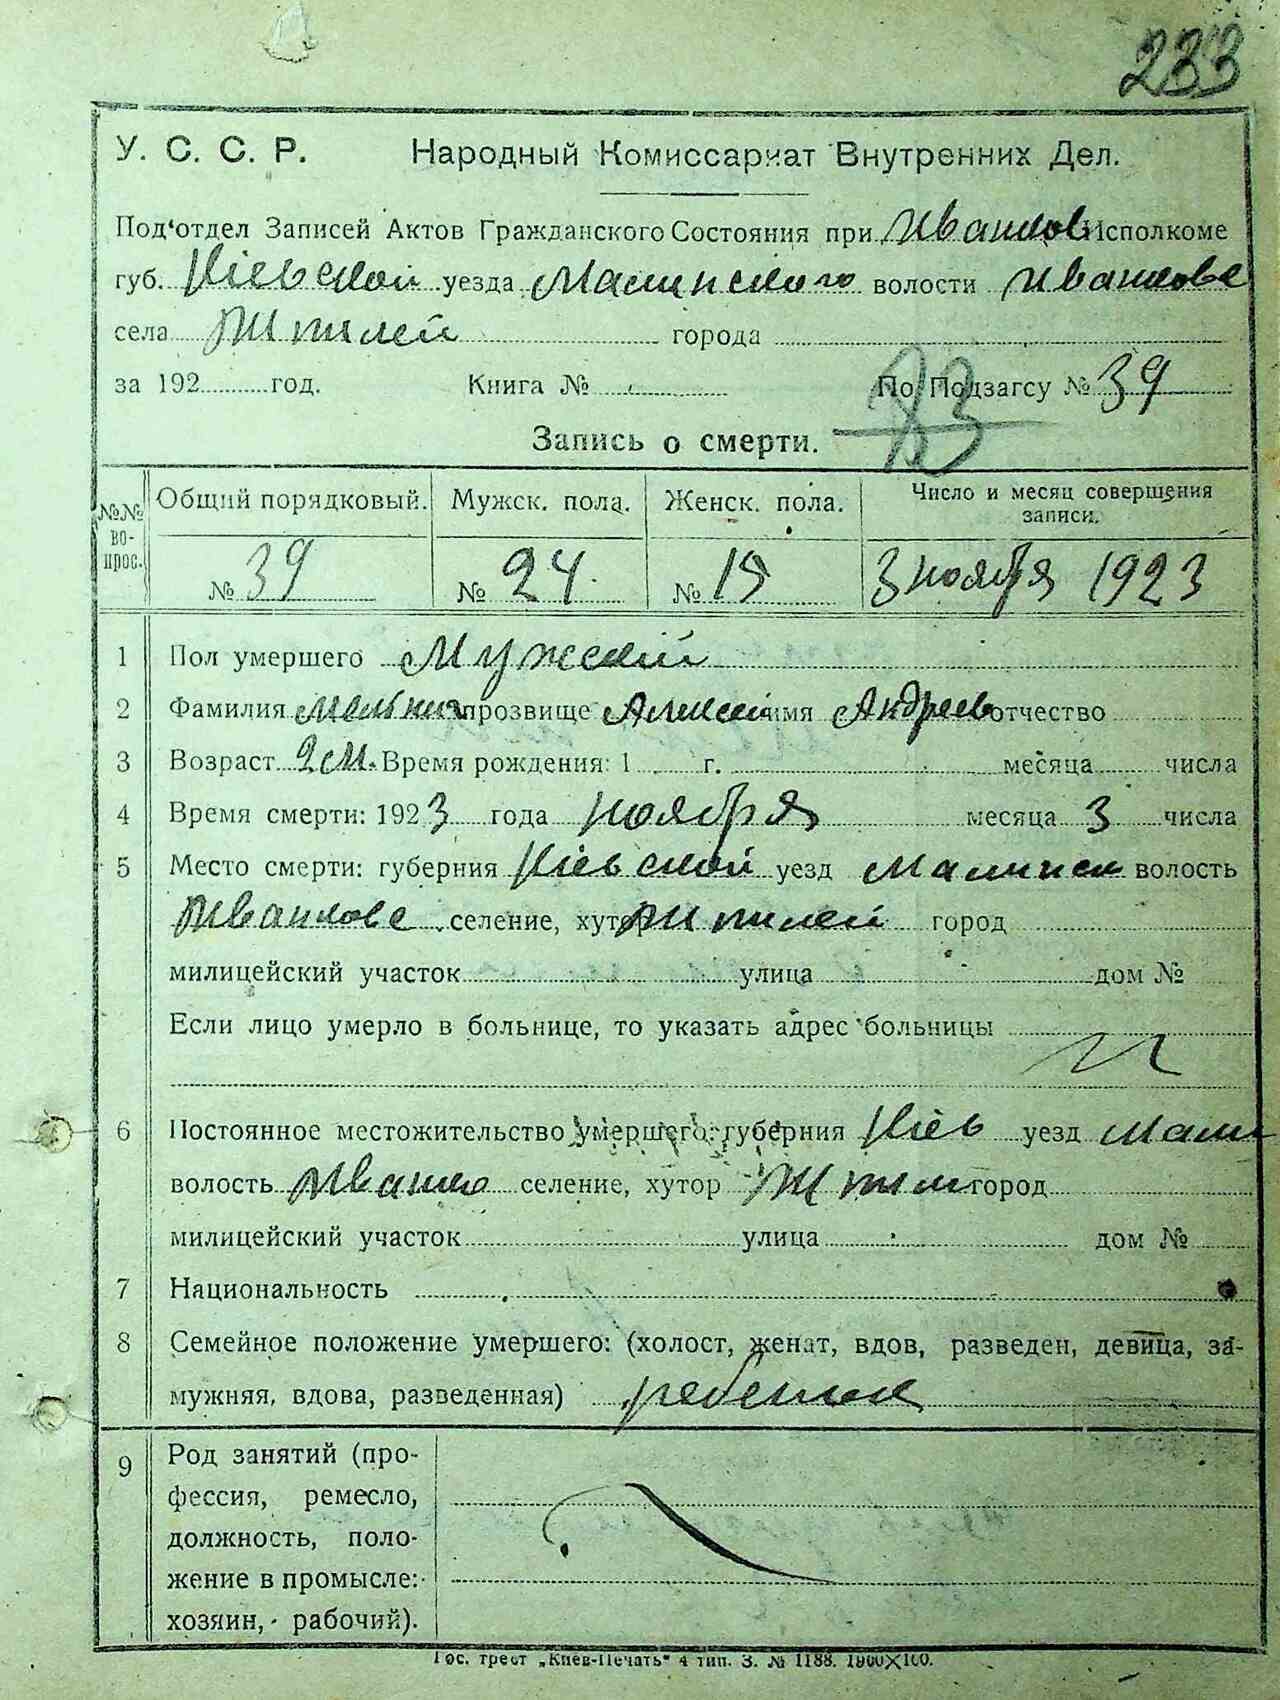 233
У. С. С. Р. Народный Комиссариат Внутренних Дел.
Под‘отдел Записей Актов Гражданского Состояния при Иванков Исполкоме
губ. Кіевской уезда Малинского волости Иванкове
села города
за 192 год. Книга № По Подзагсу № 39
83
Запись о смерти.
№№ во-прос. Общий порядковый. Мужск. пола. Женск. пола. Число и месяц совершения записи.
№ 39 № 24 № 15 3 ноября 1923
1 Пол умершего Мужской
2 Фамилия Мельник прозвище Алексей имя Андреев отчество
3 Возраст 2 м. Время рождения: 1 г. месяца числа
4 Время смерти: 1923 года ноября месяца 3 числа
5 Место смерти: губерния Кіевской уезд Малинск волость
Иванкове селение, хутор город
милицейский участок улица дом №
Если лицо умерло в больнице, то указать адрес больницы
6 Постоянное местожительство умершего: губерния Кіев уезд Мали
волость Иванко селение, хутор город
милицейский участок улица дом №
7 Национальность
8 Семейное положение умершего: (холост, женат, вдов, разведен, девица, за-
мужняя, вдова, разведенная) ребенок
9 Род занятий (про-
фессия, ремесло,
должность, поло-
жение в промысле:
хозяин, рабочий).
Гос. трест „Киев-Печать“ 4 тип. З. № 1188. 1000×100.